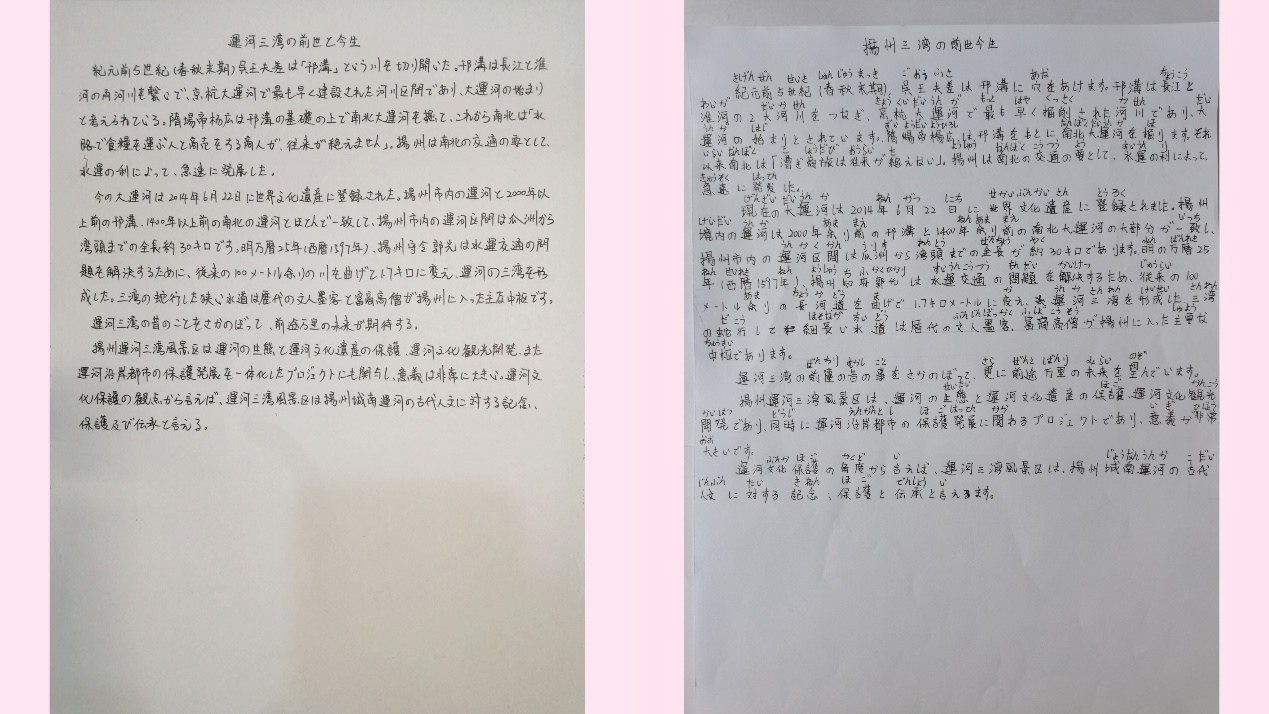 運河三湾の前世と今生
紀元前5世紀(春秋末期)呉王夫差は「邗溝」という川を切り開いた。邗溝は長江と淮
河の両河川を繋いで、京杭大運河で最も早く建設された河川区間であり、大運河の始まり
と考えられている。隋煬帝楊広は邗溝の基礎の上で南北大運河を掘て、これから南北は「水
路で食糧を運ぶ人と商売をする商人が、往来が絶えません」。揚州は南北の交通の要として、
水運の利によって、急速に発展した。
今の大運河は2014年6月22日に世界文化遺産に登録された。揚州市内の運河と2000年以
上前の邗溝、1400年以上前の南北の運河とほとんど一致して、揚州市内の運河区間は瓜洲から
湾頭までの全長約30キロです。明万暦25年(西暦1597年)、揚州守令郭光は水運交通の問
題を解決するために、従来の100メートル余りの川を曲げて1.7キロに変え、運河の三湾を形
成した。三湾の蛇行した狭い水道は歴代の文人墨客と富商高僧が揚州に入った主な中枢です。
運河三湾の昔のことをさかのぼって、前途万里の未来が期待する。
揚州運河三湾風景区は運河の生態と運河文化遺産の保護、運河文化観光開発、また
運河沿岸都市の保護発展を一体化したプロジェクトにも関与し、意義は非常に大きい。運河文
化保護の観点から言えば、運河三湾風景区は揚州城南運河の古代人文に対する記念、
保護及び伝承と言える。
揚州三湾の前世今生
きげんぜん せいき しゅんじゅうまっき ごおう ふさ あな ちょうこう
紀元前5世紀(春秋末期)、呉王夫差は邗溝に穴をあけます。邗溝は長江と
わいが だいかせん きょうくいだいうんが もっと はや くっさく かせん だい
淮河の2大河川をつなぎ、京杭大運河で最も早く掘削された河川であり、大
うんが はじ ずいようだいようひろし なんぼくだいうんが ほ
運河の始まりとされています。隋煬帝楊広は邗溝をもとに南北大運河を掘ります。それ
以来南北は「漕ぎ商旅は往来が絶えない」。揚州は南北の交通の要として、水運の利によって、
きゅうそく はってん
急速に発展した。
げんざい だいうんが ねん がつ にち せかいぶんかいさん とうろく
現在の大運河は2014年6月22日に世界文化遺産に登録されました。揚州
けいだい うんが ねんあま まえ いっち
境内の運河は2000年余り前の邗溝と1400年余り前の南北大運河の大部分が一致し、
揚州市内の運河区間は瓜洲から湾頭までの全長が約30キロであります。明の万暦25
年(西暦1597年)、揚州知府郭光は水運交通の問題を解決するため、従来の100
メートル余りの長河道を曲げて1.7キロメートルに変え、運河三湾を形成した。三湾
の蛇行して細長い水道は歴代の文人墨客、富商高僧が揚州に入った主要な
ちゅうすう
中枢であります。
ぜんちり むかし こと さら ぜんと ばんり みらい のぞ
運河三湾の前塵の昔の事をさかのぼって、更に前途万里の未来を望んでいます。
せいたい ほご かんこう
揚州運河三湾風景区は、運河の生態と運河文化遺産の保護、運河文化観光
かいはつ どうじ うんがとし ほご はってん かか いぎ ひじょう
開発であり、同時に運河沿岸都市の保護発展に関わるプロジェクトであり、意義が非常に
おお
大きいです。
ぶんか ほご かくど い じょうなんうんが こだい
運河文化保護の角度から言えば、運河三湾風景区は、揚州城南運河の古代
じんぶん たい きねん ほご でんしょう い
人文に対する記念、保護と伝承と言えます。